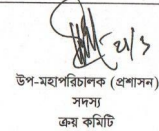 উপ-মহাপরিচালক (প্রশাসন)
সদস্য
ক্রয় কমিটি